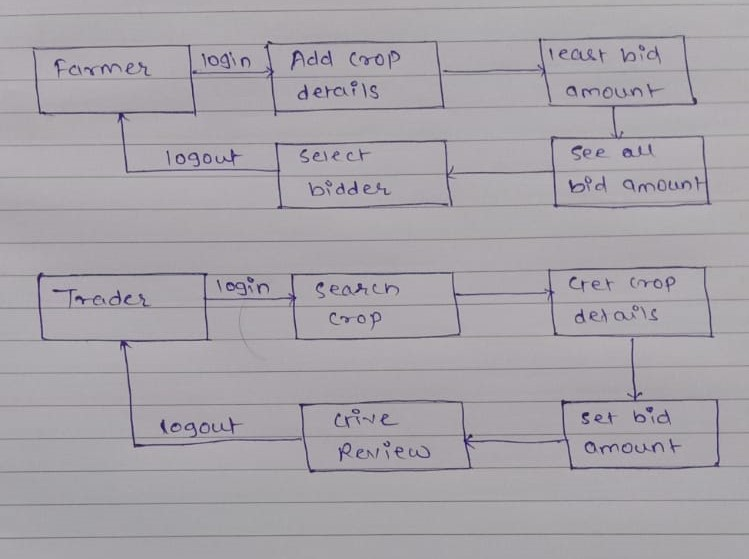 Farmer
login
Add crop
details
least bid
amount
see all
bid amount
select
bidder
logout
Trader
login
search
crop
Get crop
details
set bid
amount
Give
Review
logout